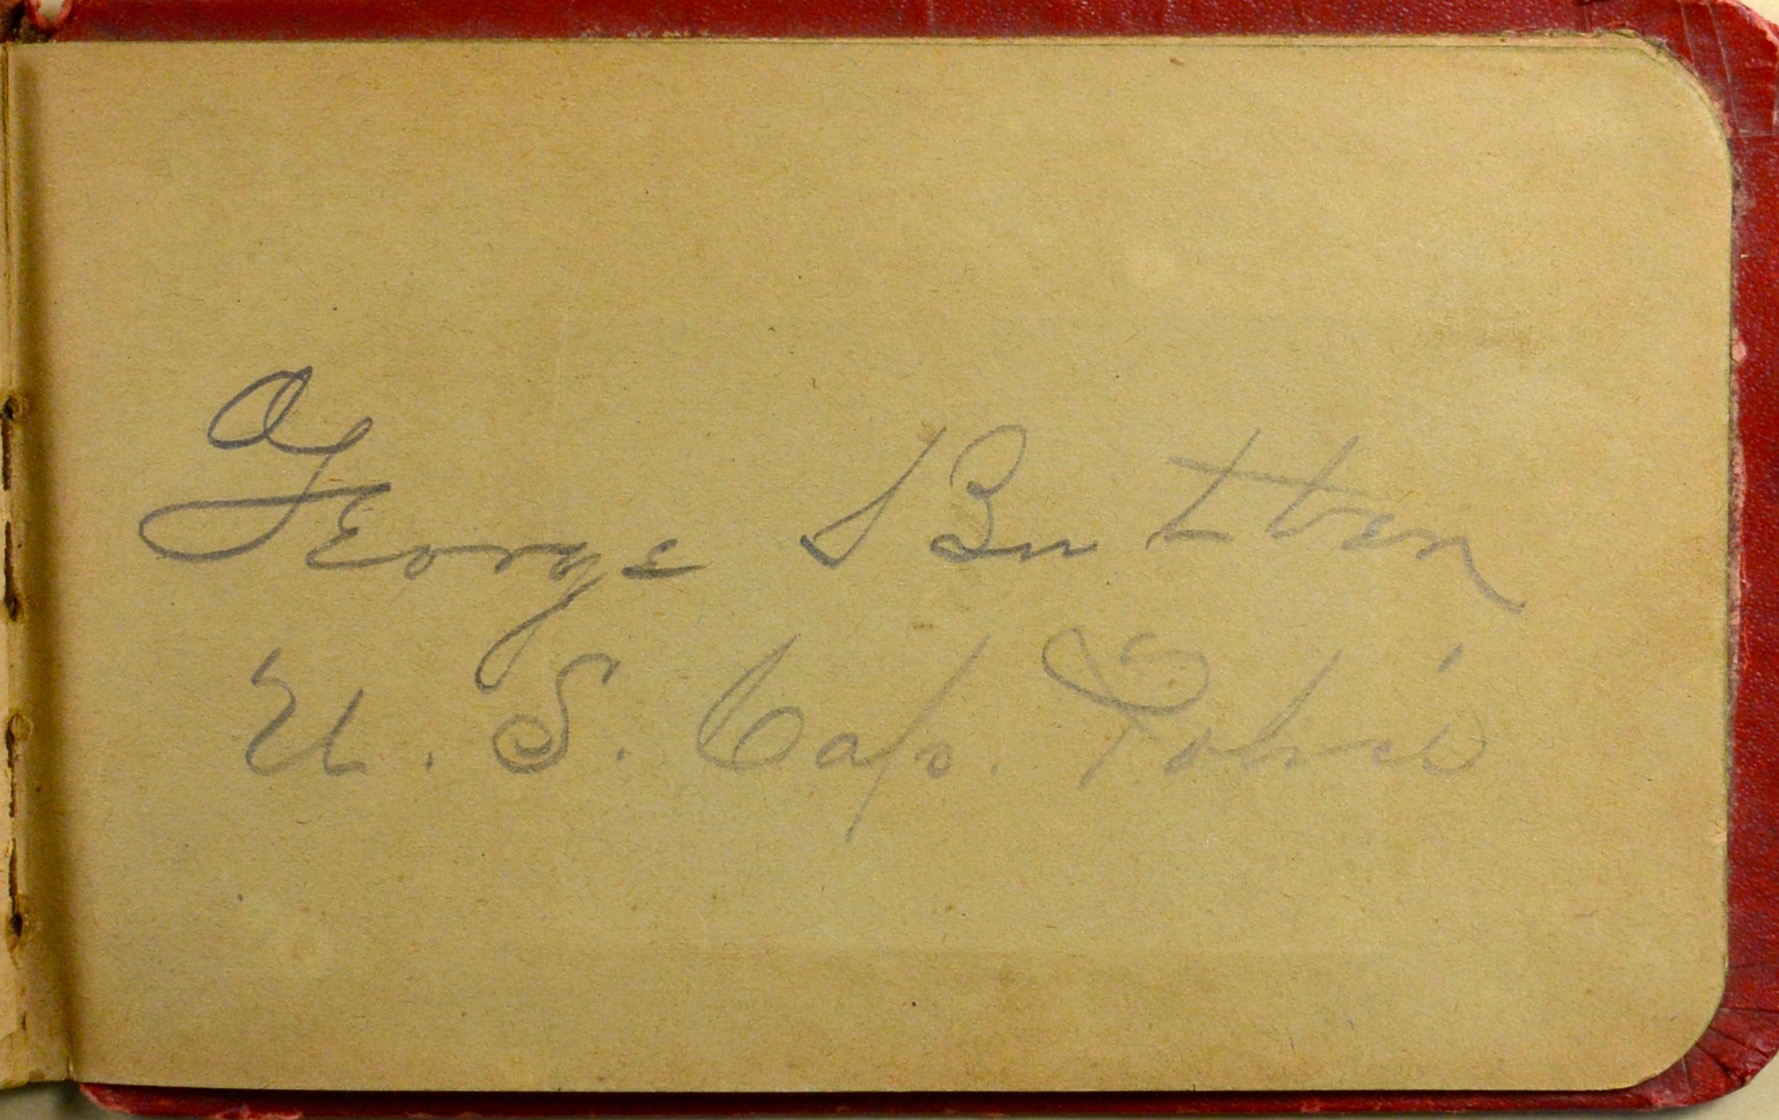 George Button
U. S. Cap. Police